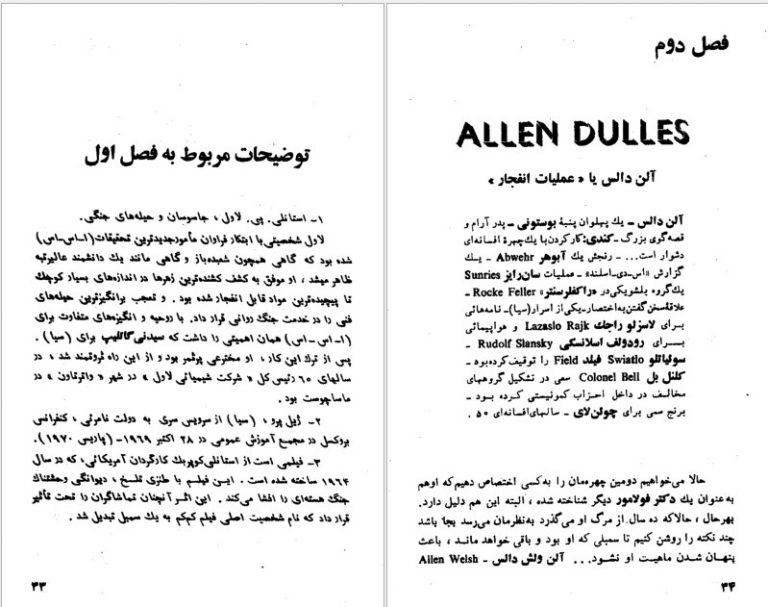 توضیحات مربوط به فصل اول
۱- استانلی. پی. لاول ، جاسوسان و حیله‌های جنگی.
لاول شخصیتی با ابتکار فراوان مأمور جدیدترین تحقیقات (ا-س-اس)
شده بود که گاهی همچون شعبده‌باز و گاهی مانند یک دانشمند عالیرتبه
ظاهر میشد ، او موفق به کشف کشنده‌ترین زهرها در اندازه‌های بسیار کوچک
تا پیچیده‌ترین مواد قابل انفجار شده بود . و تعجب برانگیزترین حیله‌های
فنی را در خدمت جنگ روانی قرار داد. با روحیه و انگیزه‌های متفاوت برای
(ا-اس-اس) همان اهمیتی را داشت که سیدنی گاتلیپ برای (سیا) .
پس از ترک این کار ، او مخترعی پرثمر بود و از این راه ثروتمند شد ، در
سالهای ۶۰ رئیس کل « شرکت شیمیائی لاول » در شهر « واترتاون » در
ماساچوست بود .
۲- ژیل پرو ، (سیا) از سرویس سری به دولت نامرئی ، کنفرانس
بروکسل در مجمع آموزش عمومی در ۲۸ اکتبر ۱۹۶۹- (پاریس ۱۹۷۰) .
۳- فیلمی است از استانلی کوپریک کارگردان آمریکائی، که در سال
۱۹۶۴ ساخته شده است . این فیلم با طنزی تلخ ، دیوانگی وحشتناک
جنگ هسته‌ای را افشا می‌کند . این اثر آنچنان تماشاگران را تحت تأثیر
قرار داد که نام شخصیت اصلی فیلم کم‌کم به یک سمبل تبدیل شد .
۳۳
فصل دوم
ALLEN DULLES
آلن دالس یا « عملیات انفجار »
آلن دالس - یک پهلوان پنبهٔ بوستونی - پدر آرام و
قصه‌گوی بزرگ - کندی: کار کردن با یک چهرهٔ افسانه‌ای
دشوار است... - رنجش یک آبوهر Abwehr - یک
گزارش «اس-دی-اسلند» - عملیات سان‌رایز Sunries
یک گروه بلشویکی در «راکفلرسنتر» Rocke Feller -
علاقهٔ سخن گفتن به اختصار - یکی از اسرار (سیا) - نامه‌هائی
برای لاسزلو راجک Lazaslo Rajk و هواپیمائی
برای رودولف اسلانسکی Rudolf Slansky -
سوئیاتلو Swiatlo فیلد Field را توقیف کرده بود -
کلنل بل Colonel Bell سعی در تشکیل گروههای
مخالف در داخل احزاب کمونیستی کرده بود -
برنج سمی برای چوئن‌لای - سالهای افسانه‌ای ۵۰ .
حالا می‌خواهیم دومین چهره‌مان را به کسی اختصاص دهیم که او هم
به عنوان یک دکتر فولامور دیگر شناخته شده ، البته این هم دلیل دارد.
بهرحال ، حالا که ده سال از مرگ او می‌گذرد به‌نظرمان می‌رسد بجا باشد
چند نکته را روشن کنیم تا سمبلی که او بود و باقی خواهد ماند ، باعث
پنهان شدن ماهیت او نشود... آلن ولش دالس - Allen Welsh
۳۴